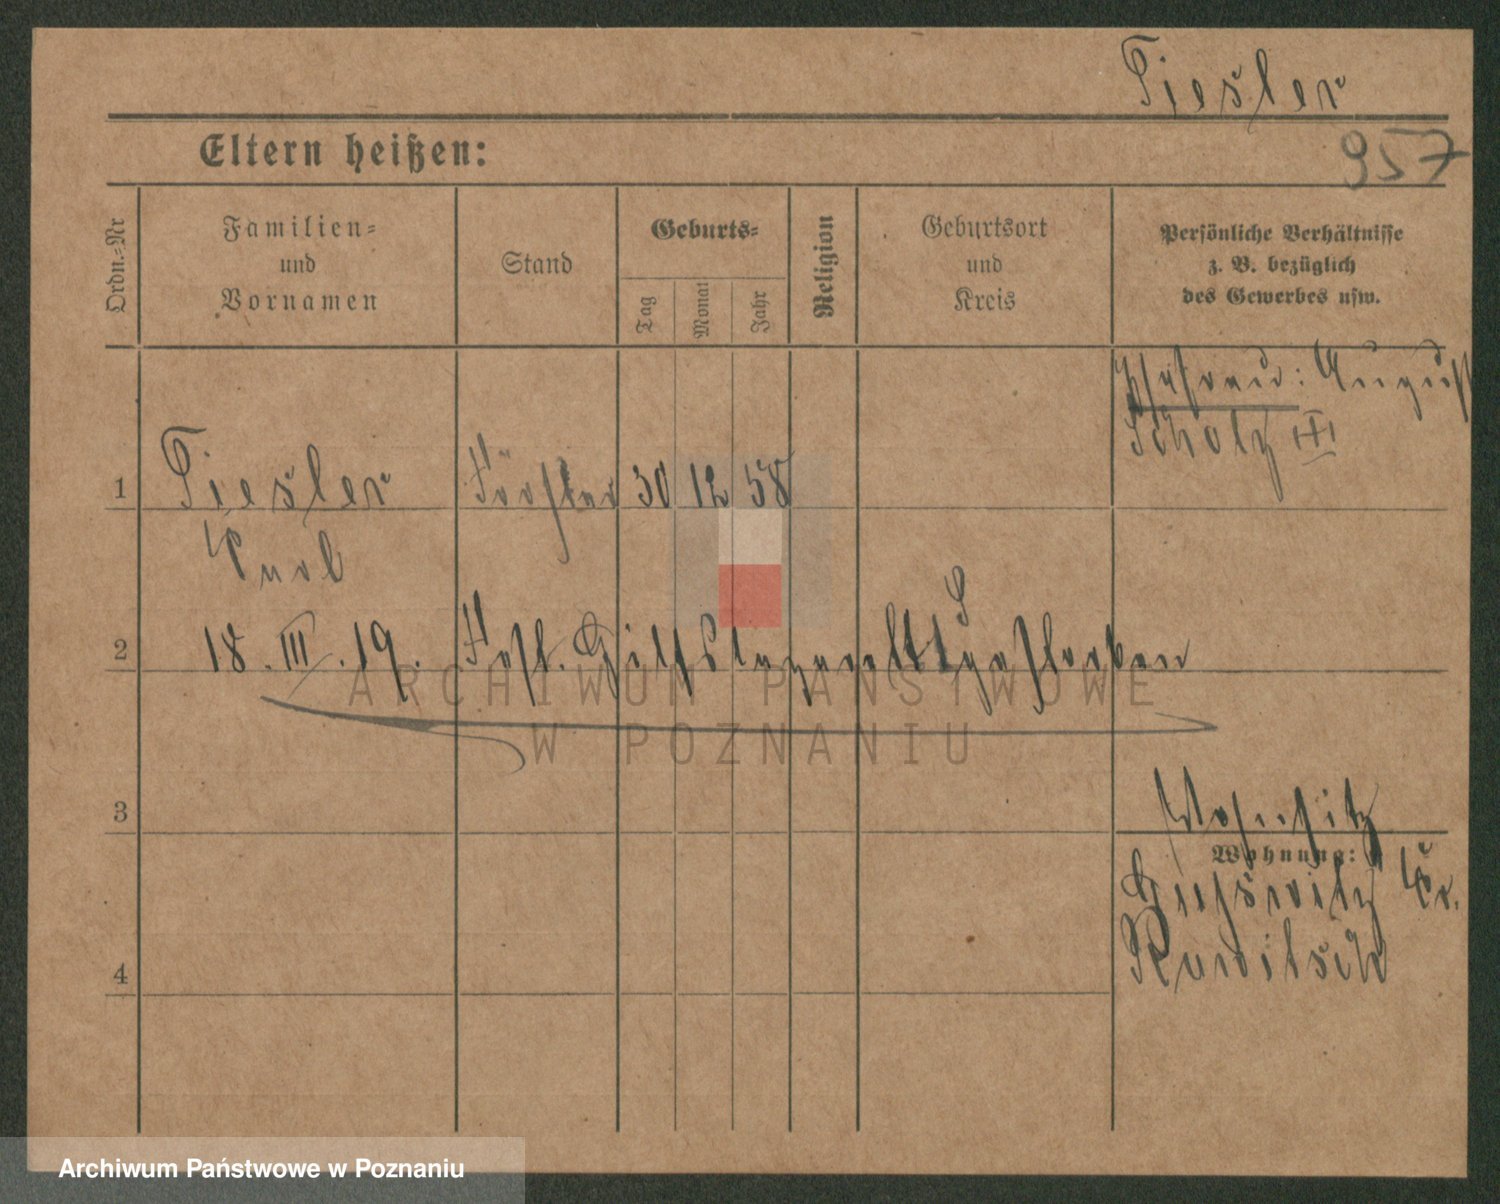 Tiesler
957
Eltern heißen:
Ordn.-Nr
Familien-
und
Vornamen
Stand
Geburts-
Tag
Monat
Jahr
Religion
Geburtsort
und
Kreis
Persönliche Verhältnisse
z. B. bezüglich
des Gewerbes usw.
August
Scholz III
1 Tiesler Förster 30 12 58
Karl
2 18. III. 19. Fest. Hilfslazarett I gestorben
3
Wohnsitz
Wohnung:
Kr.
Rawitsch
4
ARCHIWUM PAŃSTWOWE
W POZNANIU
Archiwum Państwowe w Poznaniu